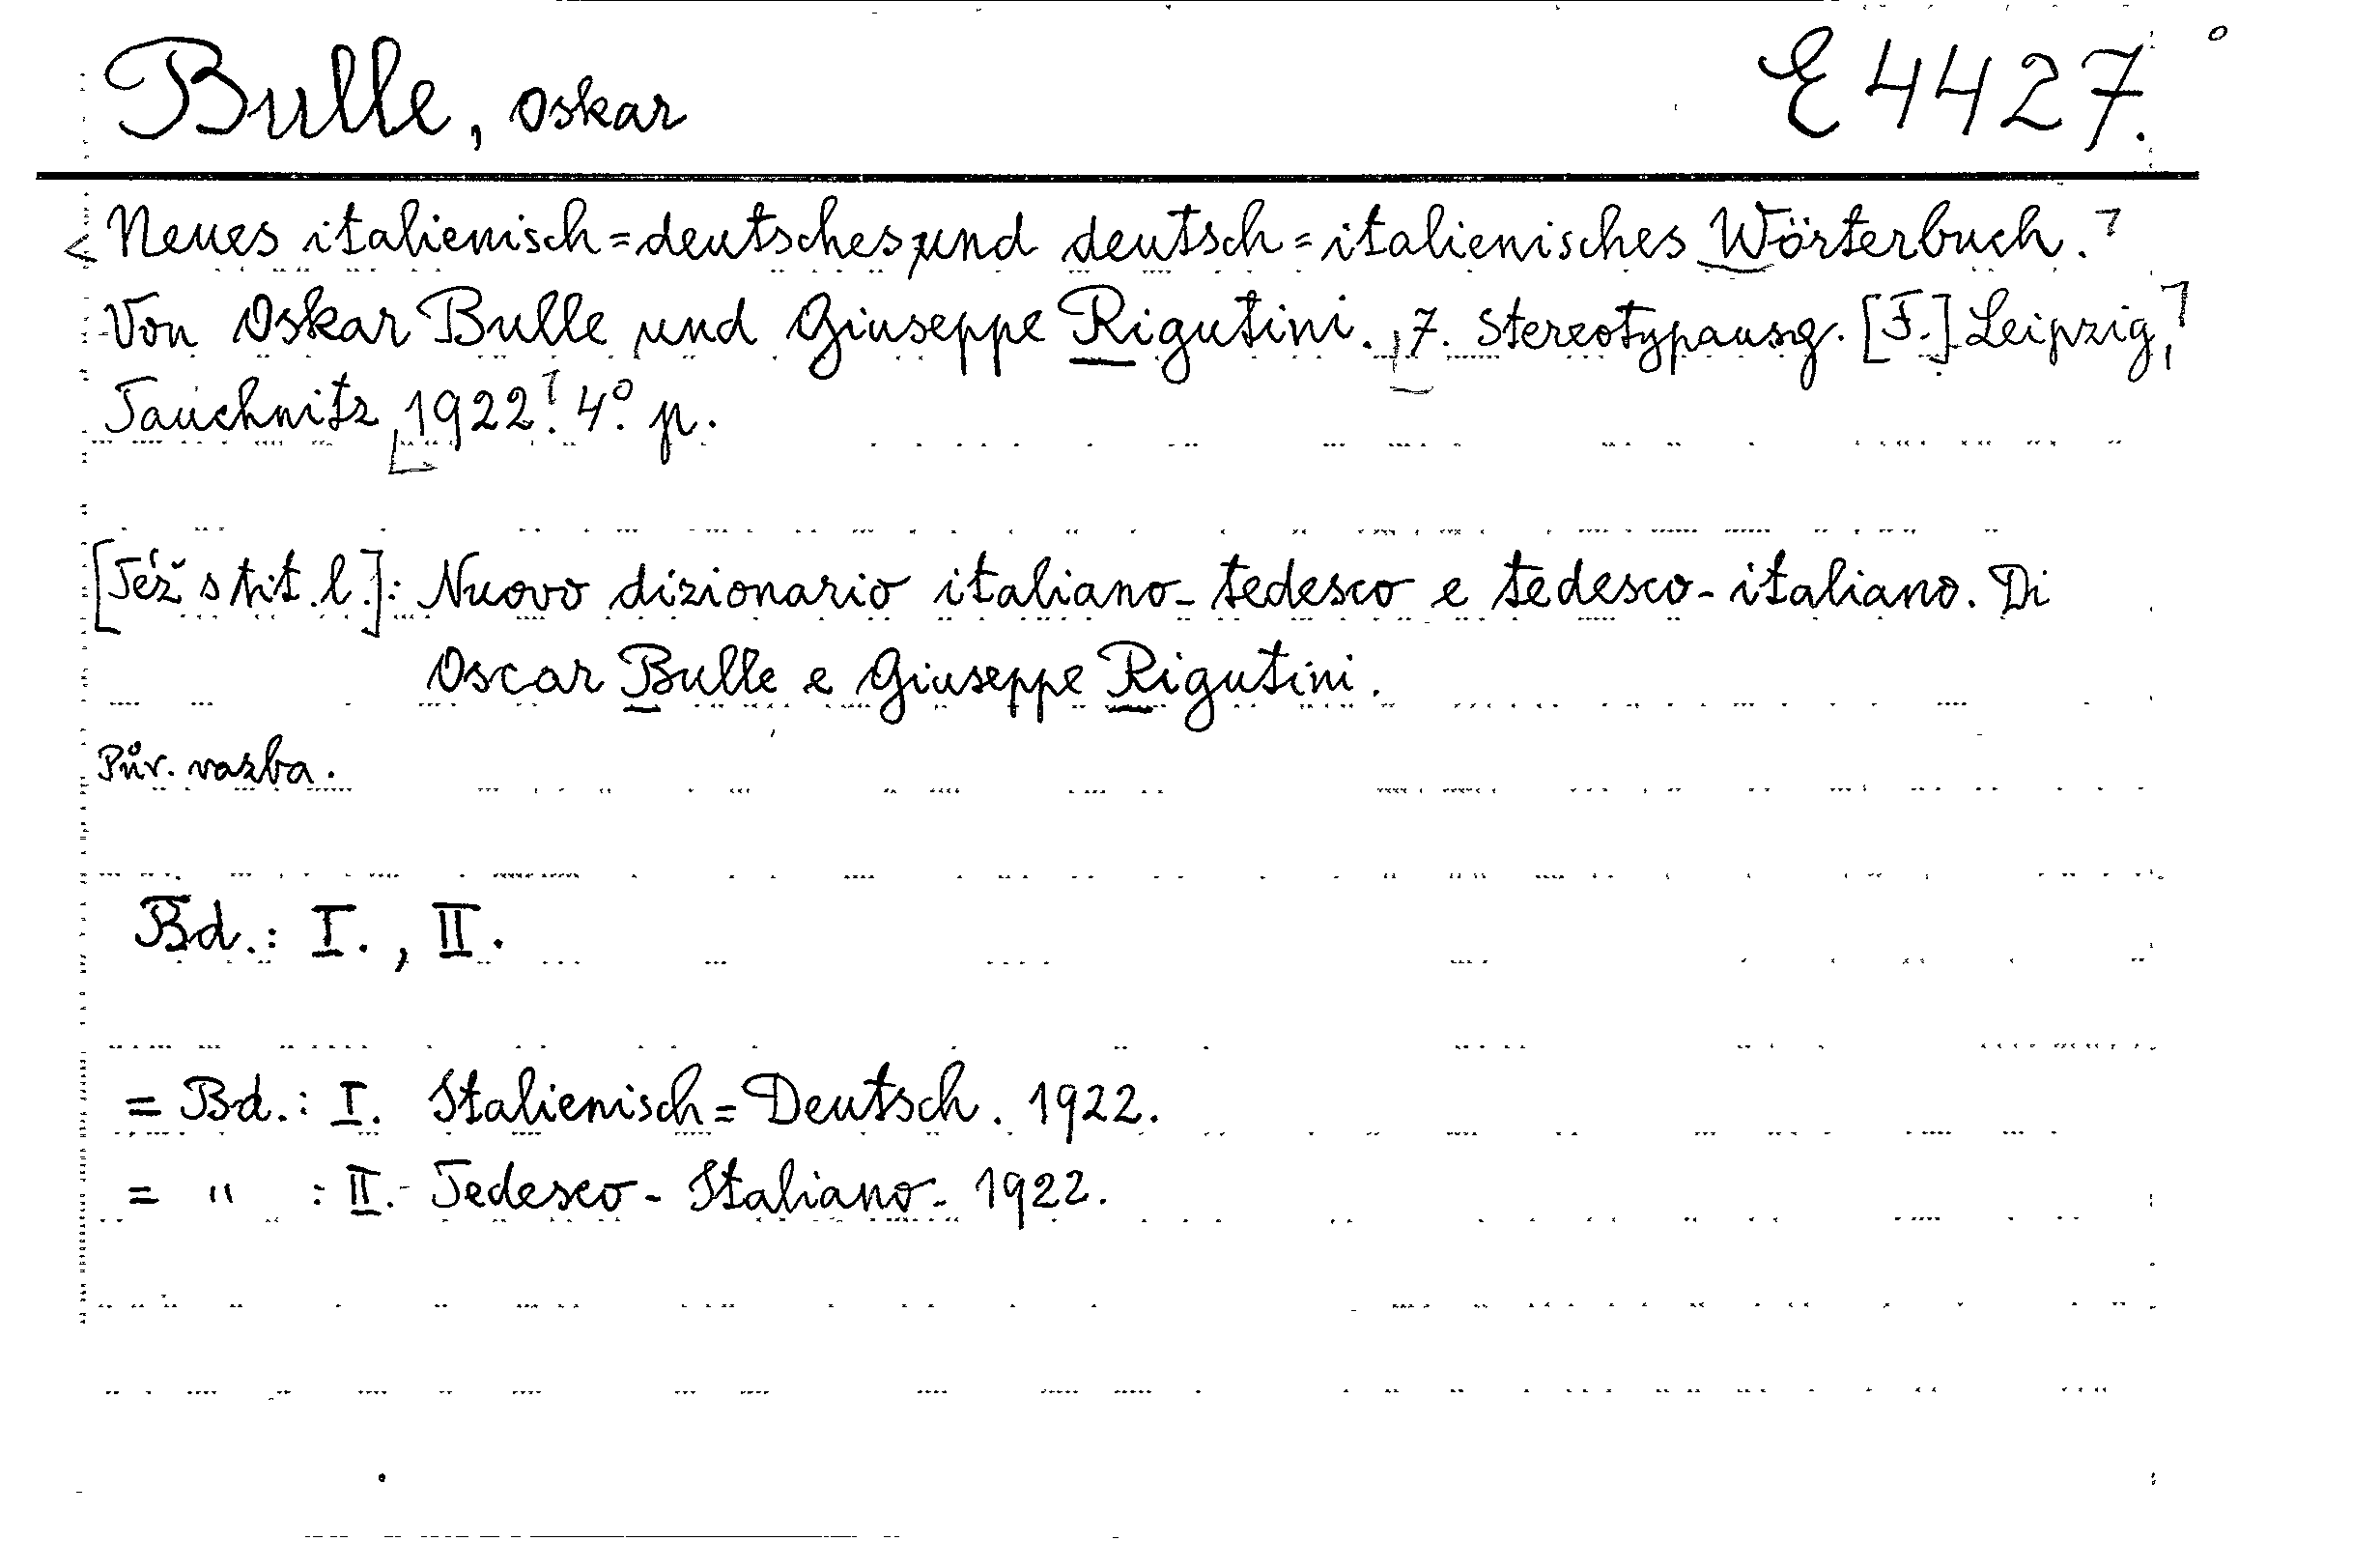 Bulle, Oskar E 4427.
Neues italienisch=deutsches und deutsch=italienisches Wörterbuch.
Von Oskar Bulle und Giuseppe Rigutini. 7. Stereotypausg. [F.] Leipzig,
Tauchnitz 1922. 4° p.
[Též s tit. l.]: Nuovo dizionario italiano-tedesco e tedesco-italiano. Di
Oscar Bulle e Giuseppe Rigutini.
Pův. vazba.
Bd.: I., II.
= Bd.: I. Italienisch=Deutsch. 1922.
= " : II. Tedesco-Italiano- 1922.